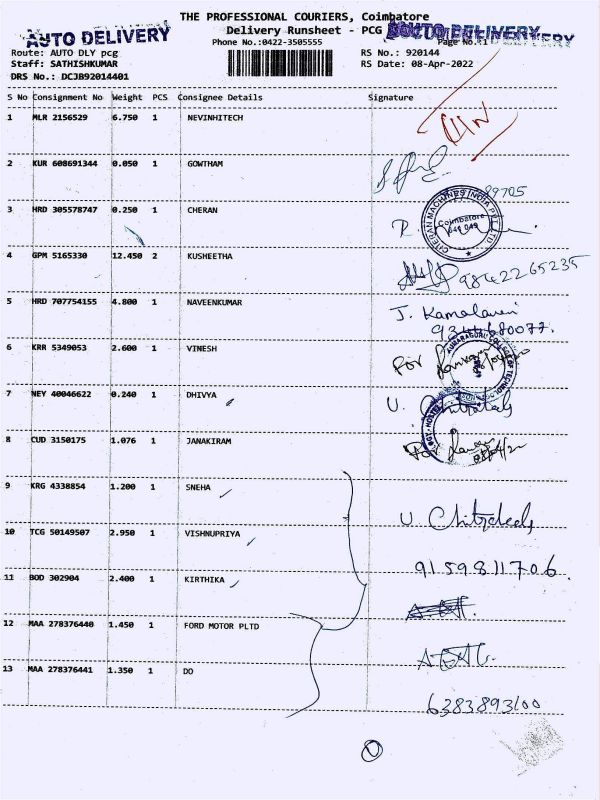 THE PROFESSIONAL COURIERS, Coimbatore
AUTO DELIVERY
Delivery Runsheet - PCG
AUTO DELIVERY
Phone No.:0422-3505555
Page No.:1
Route: AUTO DLY pcg
RS No.: 920144
Staff: SATHISHKUMAR
RS Date: 08-Apr-2022
DRS No.: DCJB92014401
S No Consignment No Weight PCS Consignee Details Signature
1 MLR 2156529 6.750 1 NEVINHITECH
2 KUR 608691344 0.050 1 GOWTHAM
89705
3 HRD 305578747 0.250 1 CHERAN
CHERAN MACHINES INDIA PVT. LTD.
Coimbatore
641 049
4 GPM 5165330 12.450 2 KUSHEETHA
9842265235
5 HRD 707754155 4.800 1 NAVEENKUMAR
J. Kamalaveni
6 KRR 5349053 2.600 1 VINESH
For
7 NEY 40046622 0.240 1 DHIVYA
U. Chitradeds
8 CUD 3150175 1.076 1 JANAKIRAM
For
9 KRG 4338854 1.200 1 SNEHA
10 TCG 50149507 2.950 1 VISHNUPRIYA
U Chitradeds
11 BOD 302904 2.400 1 KIRTHIKA
9159811706.
12 MAA 278376440 1.450 1 FORD MOTOR PLTD
13 MAA 278376441 1.350 1 DO
6383893100